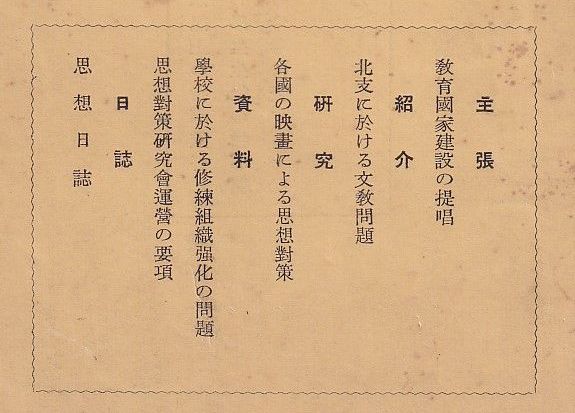 主張
教育國家建設の提唱
紹介
北支に於ける文教問題
研究
各國の映畫による思想對策
資料
學校に於ける修練組織强化の問題
思想對策研究會運營の要項
日誌
思想日誌